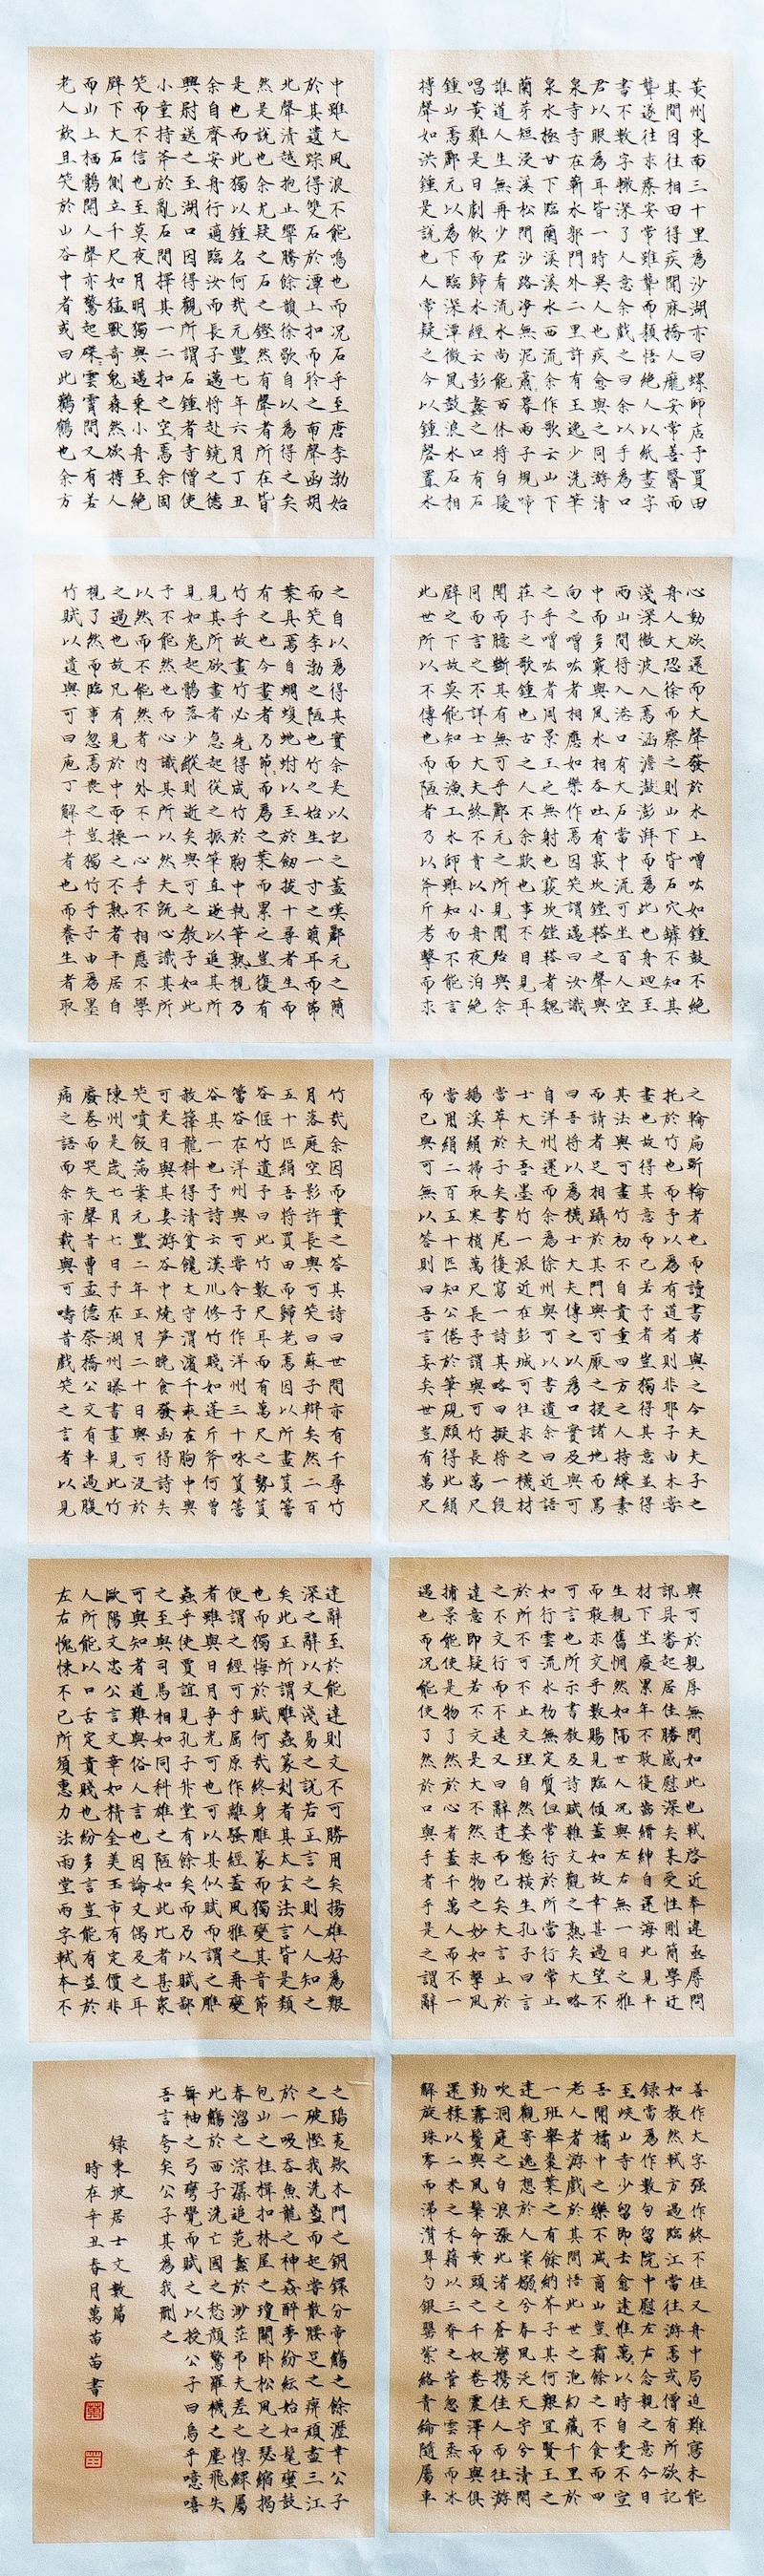 黃州東南三十里為沙湖亦曰螺師店予買田
其間因往相田得疾聞麻橋人龐安常善醫而
聾遂往求療安常雖聾而穎悟絕人以紙畫字
書不數字輒深了人意余戲之曰余以手為口
君以眼為耳皆一時異人也疾愈與之同游清
泉寺寺在蘄水郭門外二里許有王逸少洗筆
泉水極甘下臨蘭溪溪水西流余作歌云山下
蘭芽短浸溪松間沙路淨無泥蕭暮雨子規啼
誰道人生無再少君看流水尚能西休將白髮
唱黃雞是日劇飲而歸水經云彭蠡之口有石
鍾山焉酈元以為下臨深潭微風鼓浪水石相
搏聲如洪鍾是說也人常疑之今以鍾磬置水
中雖大風浪不能鳴也而況石乎至唐李渤始
於其遺踪得雙石於潭上扣而聆之南聲函胡
北聲清越抱止響騰餘韻徐歇自以為得之矣
然是說也余尤疑之石之鏗然有聲者所在皆
是也而此獨以鍾名何哉元豐七年六月丁丑
余自齊安舟行適臨汝而長子邁將赴饒之德
興尉送之至湖口因得觀所謂石鍾者寺僧使
小童持斧於亂石間擇其一二扣之空焉余固
笑而不信也至莫夜月明獨與邁乘小舟至絕
壁下大石側立千尺如猛獸奇鬼森然欲搏人
而山上栖鶻聞人聲亦驚起磔雲霄間又有若
老人欬且笑於山谷中者或曰此鸛鶴也余方
心動欲還而大聲發於水上噌吰如鍾鼓不絕
舟人大恐徐而察之則山下皆石穴罅不知其
淺深微波入焉涵澹澎湃而為此也舟迴至
兩山間將入港口有大石當中流可坐百人空
中而多竅與風水相吞吐有窾坎鏜鞳之聲與
向之噌吰者相應如樂作焉因笑謂邁曰汝識
之乎噌吰者周景王之無射也窾坎鏜鞳者魏
莊子之歌鍾也古之人不余欺也事不目見耳
聞而臆斷其有無可乎酈元之所見聞殆與余
同而言之不詳士大夫終不肯以小舟夜泊絕
壁之下故莫能知而漁工水師雖知而不能言
此世所以不傳也而陋者乃以斧斤考擊而求
之自以為得其實余是以記之蓋嘆酈元之簡
而笑李渤之陋也竹之始生一寸之萌耳而節
葉具焉自蜩蝮蛇蚹以至於劍拔十尋者生而
有之也今畫者乃節而為之葉而累之豈復有
竹乎故畫竹必先得成竹於胸中執筆熟視乃
見其所欲畫者急起從之振筆直遂以追其所
見如兔起鶻落少縱則逝矣與可之教予如此
予不能然也而心識其所以然夫既心識其所
以然而不能然者內外不一心手不相應不學
之過也故凡有見於中而操之不熟者平居自
視了然而臨事忽焉喪之豈獨竹乎子由為墨
竹賦以遺與可曰庖丁解牛者也而養生者取
之輪扁斲輪者也而讀書者與之今夫夫子之
托於竹也而予以為有道者則非耶子由未嘗
畫也故得其意而已若予者豈獨得其意並得
其法與可畫竹初不自貴重四方之人持縑素
而請者足相躡於其門與可厭之投諸地而罵
曰吾將以為襪士大夫傳之以為口實及與可
自洋州還而余為徐州與可以書遺余曰近語
士大夫吾墨竹一派近在彭城可往求之襪材
當萃於子矣書尾復寫一詩其略曰擬將一段
鵝溪絹掃取寒梢萬尺長予謂與可竹長萬尺
當用絹二百五十匹知公倦於筆硯願得此絹
而已與可無以答則曰吾言妄矣世豈有萬尺
竹哉余因而實之答其詩曰世間亦有千尋竹
月落庭空影許長與可笑曰蘇子辯矣然二百
五十匹絹吾將買田而歸老焉因以所畫篔簹
谷偃竹遺予曰此竹數尺耳而有萬尺之勢篔
簹谷在洋州與可嘗令予作洋州三十咏篔簹
谷其一也予詩云漢川修竹賤如蓬斤斧何曾
赦籜龍料得清貧饞太守渭濱千畝在胸中與
可是日與其妻游谷中燒筍晚食發函得詩失
笑噴飯滿案元豐二年正月二十日與可沒於
陳州是歲七月七日予在湖州曝書畫見此竹
廢卷而哭失聲昔曹孟德祭橋公文有車過腹
痛之語而余亦載與可疇昔戲笑之言者以見
與可於親厚無間如此也軾啓近奉違亟辱問
訊具審起居佳勝感慰深矣某受性剛簡學迂
材下坐廢累年不敢復齒縉紳自還海北見平
生親舊惘然如隔世人況與左右無一日之雅
而敢求交乎數賜見臨傾蓋如故幸甚過望不
可言也所示書教及詩賦雜文觀之熟矣大略
如行雲流水初無定質但常行於所當行常止
於所不可不止文理自然姿態橫生孔子曰言
之不文行而不遠又曰辭達而已矣夫言止於
達意即疑若不文是大不然求物之妙如擊風
捕景能使是物了然於心者蓋千萬人而不一
遇也而況能使了然於口與手者乎是之謂辭
達辭至於能達則文不可勝用矣揚雄好為艱
深之辭以文淺易之說若正言之則人人知之
矣此正所謂雕蟲篆刻者其太玄法言皆是類
也而獨悔於賦何哉終身雕篆而獨變其音節
便謂之經可乎屈原作離騷經蓋風雅之再變
者雖與日月爭光可也可以其似賦而謂之雕
蟲乎使賈誼見孔子升堂有餘矣而乃以賦鄙
之至與司馬相如同科雄之陋如此比者甚眾
可與知者道難與俗人言也因論文偶及之耳
歐陽文忠公言文章如精金美玉市有定價非
人所能以口舌定貴賤也紛多言豈能有益於
左右愧悚不已所須惠力法雨堂兩字軾本不
善作大字强作終不佳又舟中局迫難寫未能
如教然軾方過臨江當往游焉或僧有所欲記
録當為作數句留院中慰左右念親之意今日
至峽山寺少留即去愈遠惟萬以時自愛不宣
吾聞橘中之樂不減商山豈霜餘之不食而四
老人者游戲於其間悟此世之泡幻藏千里於
一班舉棗葉之有餘納芥子其何艱宜賢王之
達觀寄逸想於人寰嫋兮春風泛天宇兮清閑
吹洞庭之白浪漲北渚之蒼灣携佳人而往游
勤霧鬢與風鬟命黃頭之千奴卷震澤而與俱
還糅以二米之禾藉以三脊之菅忽雲烝而冰
解旋珠零而涕潸翠勺銀罌紫絡青綸隨屬車
之鴟夷款木門之銅鐶分帝觴之餘瀝幸公子
之破慳我洗盞而起嘗散腰足之痹頑盡三江
於一吸吞魚龍之神姦醉夢紛紜始如髦蠻鼓
包山之桂楫扣林屋之瓊關卧松風之瑟縮揭
春溜之淙潺追范蠡於渺茫弔夫差之惸鰥屬
此觴於西子洗亡國之愁顏驚羅襪之塵飛失
舞袖之弓彎覺而賦之以授公子曰烏乎噫嘻
吾言夸矣公子其為我刪之
録東坡居士文數篇
時在辛丑春月萬苗苗書